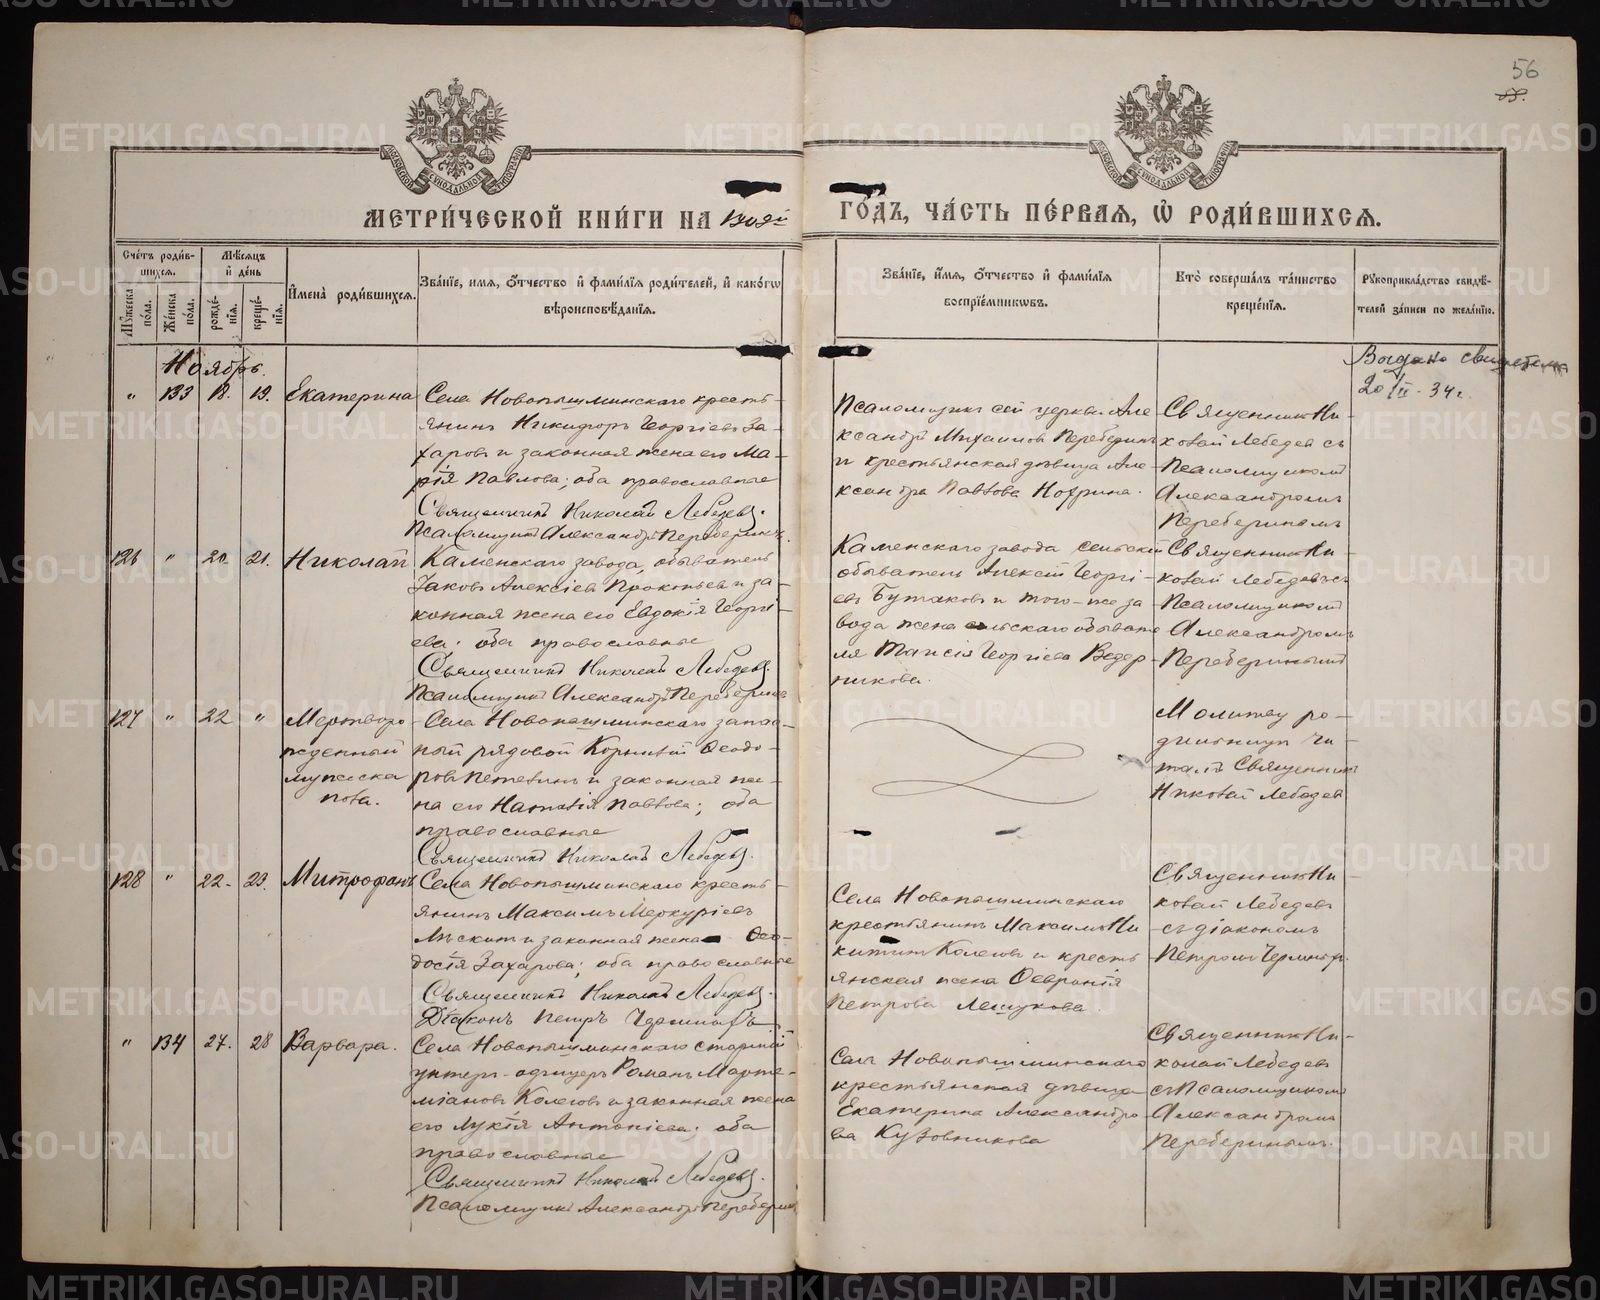 56
МЕТРИ́ЧЕСКОЙ КНИ́ГИ НА 1909й
ГО́ДЪ, ЧА́СТЬ ПЕ́РВАЯ, Ѡ҆ РОДИ́ВШИХСЯ.
Сче́тъ роди́в-
шихся.
Мѣ́сяцъ
и҆ де́нь
Мꙋ́жеска
по́ла.
Же́нска
по́ла.
рожде́-
нїя.
креще́-
нїя.
И҆мена̀ роди́вшихся.
Зва́нїе, и́мя, о҆́тчество и҆ фами́лїя роди́телей, и҆ како́гѡ
вѣроисповѣ́данїя.
Зва́нїе, и҆́мя, о҆́тчество и҆ фами́лїя
воспрїе́мникѡвъ.
Кто̀ соверша́лъ та́инство
креще́нїя.
Рꙋкоприкла́дство свидѣ́-
телей за́писи по жела́нїю.
Ноябрь.
" 133 18. 19. Екатерина
Села Новопышминскаго кресть-
янинъ Никифоръ Георгіевъ За-
харовъ и законная жена его Ма-
рія Павлова; оба православные
Священникъ Николай Лебедевъ.
Псаломщикъ Александръ Переберинъ.
Псаломщикъ сей церкви Але-
ксандръ Михаиловъ Переберинъ
и крестьянская дѣвица Але-
ксандра Павлова Нохрина.
Священникъ Ни-
колай Лебедевъ съ
Псаломщикомъ
Александромъ
Переберинымъ
Выдано свидетель
20/II - 34 г.
126 " 20. 21. Николай
Каменскаго завода, обыватель
Іаковъ Алексіевъ Прокопьев и за-
конная жена его Евдокія Георгі-
ева; оба православные
Священникъ Николай Лебедевъ.
Псаломщикъ Александръ Переберинъ
Каменскаго завода сельскій
обыватель Алексій Георгі-
евъ Бутаковъ и того-же за-
вода жена сельскаго обывате-
ля Таисія Георгіева Ведер-
никова.
Священникъ Ни-
колай Лебедевъ съ
Псаломщикомъ
Александромъ
Переберинымъ
127 " 22 " Мертворо-
жденный
мужска
пола.
Села Новопышминскаго запас-
ный рядовой Корнилій Ѳеодо-
ровъ и законная же-
на его Наталія Павлова; оба
православные
Священникъ Николай Лебедевъ.
Молитву ро-
дильницѣ чи-
талъ Священникъ
Николай Лебедев
128 " 22. 23. Митрофанъ
Села Новопышминскаго кресть-
янинъ Максимъ Меркуріевъ
и законная жена Ѳео-
досія Захарова; оба православные
Священникъ Николай Лебедевъ.
Діаконъ Петръ
Села Новопышминскаго
крестьянинъ Максимъ Ни-
китинъ Колеговъ и кресть-
янская жена Ѳевронія
Петрова Лешукова
Священникъ Ни-
колай Лебедевъ
съ діакономъ
Петромъ
" 134 27. 28 Варвара.
Села Новопышминскаго старшій
унтеръ-офицеръ Романъ Марте-
міановъ Колеговъ и законная жена
его Лукія Антоніева; оба
православные
Священникъ Николай Лебедевъ.
Псаломщикъ Александръ Переберинъ
Села Новопышминскаго
крестьянская дѣвица
Екатерина Александро-
ва Кузовникова
Священникъ Ни-
колай Лебедевъ
съ Псаломщикомъ
Александромъ
Переберинымъ.
METRIKI.GASO-URAL.RU